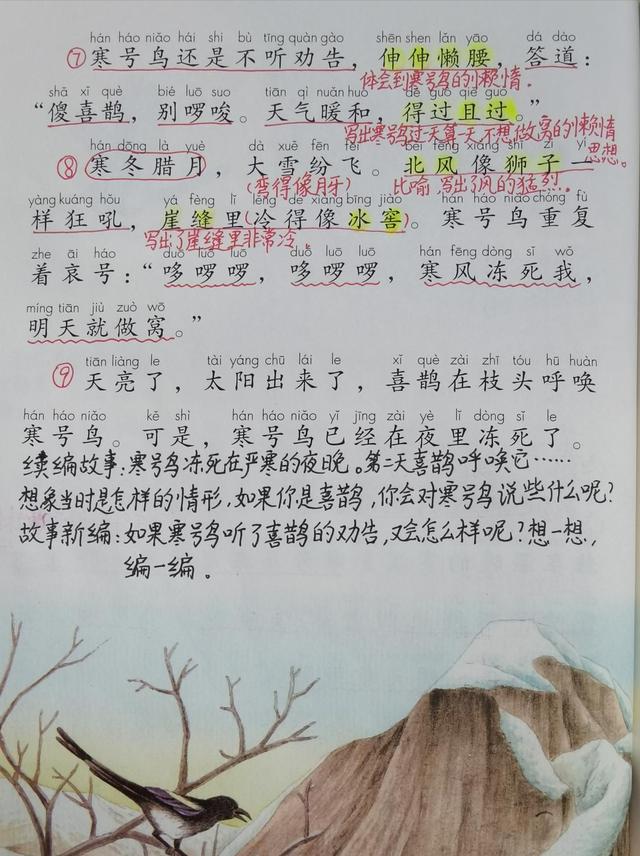 hán háo niǎo hái shi bù tīng quàn gào shēn shen lǎn yāo dá dào
⑦寒号鸟还是不听劝告，伸伸懒腰，答道：
体会到寒号鸟的懒惰。
shǎ xǐ què bié luō suo tiān qì nuǎn huo dé guò qiě guò
“傻喜鹊，别啰唆。天气暖和，得过且过。”
写出寒号鸟过一天算一天不想做窝的懒惰思想。
hán dōng là yuè dà xuě fēn fēi běi fēng xiàng shī zi yí
⑧寒冬腊月，大雪纷飞。北风像狮子一
(弯得像月牙) 比喻 写出了风的猛烈。
yàng kuáng hǒu yá fèng lǐ lěng de xiàng bīng jiào hán háo niǎo chóng fù
样狂吼，崖缝里(冷得像冰窖)。寒号鸟重复
写出了崖缝里非常冷。
zhe āi háo duō luō luō duō luō luō hán fēng dòng sǐ wǒ
着哀号：“哆啰啰，哆啰啰，寒风冻死我，
míng tiān jiù zuò wō
明天就做窝。”
tiān liàng le tài yáng chū lái le xǐ què zài zhī tóu hū huàn
⑨天亮了，太阳出来了，喜鹊在枝头呼唤
hán háo niǎo kě shì hán háo niǎo yǐ jīng zài yè lǐ dòng sǐ le
寒号鸟。可是，寒号鸟已经在夜里冻死了。
续编故事：寒号鸟冻死在严寒的夜晚。第二天喜鹊呼唤它……
想象当时是怎样的情形，如果你是喜鹊，你会对寒号鸟说些什么呢？
故事新编：如果寒号鸟听了喜鹊的劝告，又会怎么样呢？想一想，
编一编。